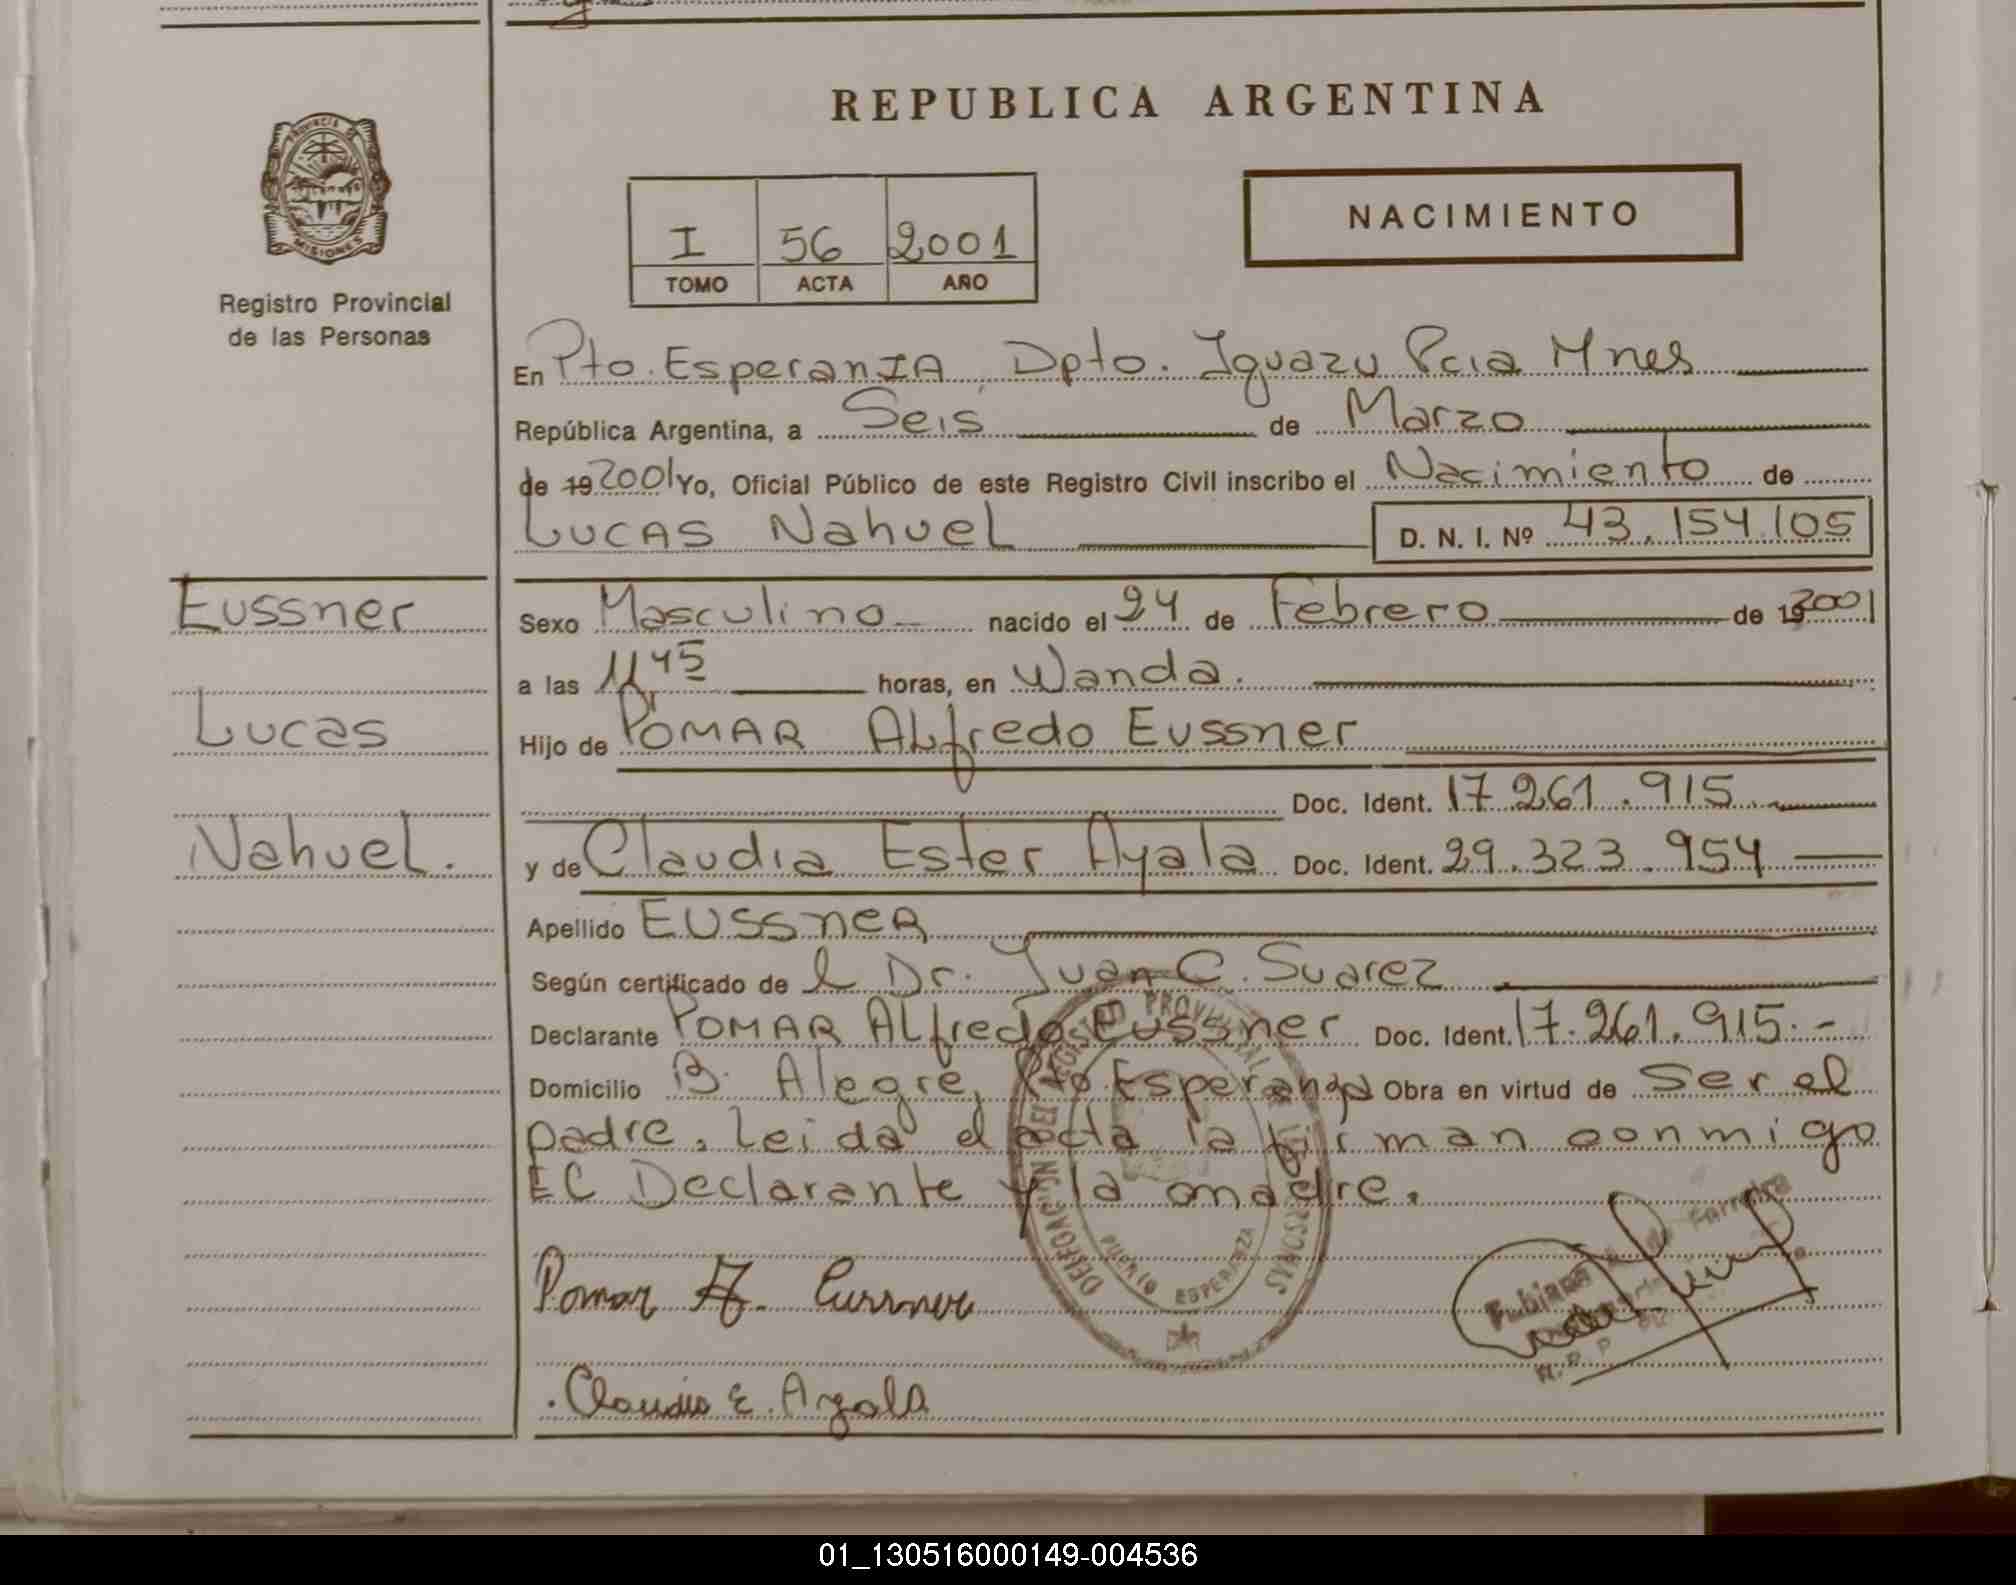 REPUBLICA ARGENTINA
PROVINCIA DE
MISIONES
Registro Provincial
de las Personas
I 56 2001
TOMO ACTA AÑO
NACIMIENTO
En Pto. Esperanza, Dpto. Iguazu Pcia Mnes
República Argentina, a Seis de Marzo
de 19 2001 Yo, Oficial Público de este Registro Civil inscribo el Nacimiento de
Lucas Nahuel D. N. I. Nº 43.154.105
Eussner
Lucas
Nahuel.
Sexo Masculino nacido el 24 de Febrero de 19 2001
a las 11 45 horas, en Wanda.
Hijo de Pomar Alfredo Eussner
Doc. Ident. 17.261.915
y de Claudia Ester Ayala Doc. Ident. 29.323.954
Apellido Eussner
Según certificado de l Dr. Juan C. Suarez
Declarante Pomar Alfredo Eussner Doc. Ident. 17.261.915.-
Domicilio B. Alegre, Pto. Esperanza Obra en virtud de Ser el
padre. Leida el acta la firman conmigo
El Declarante y la madre.
DELEGACION DEL REGISTRO PROVINCIAL DE LAS PERSONAS
PUERTO ESPERANZA
Pomar A. Eussner
Claudia E. Ayala
Ferreira
01_130516000149-004536